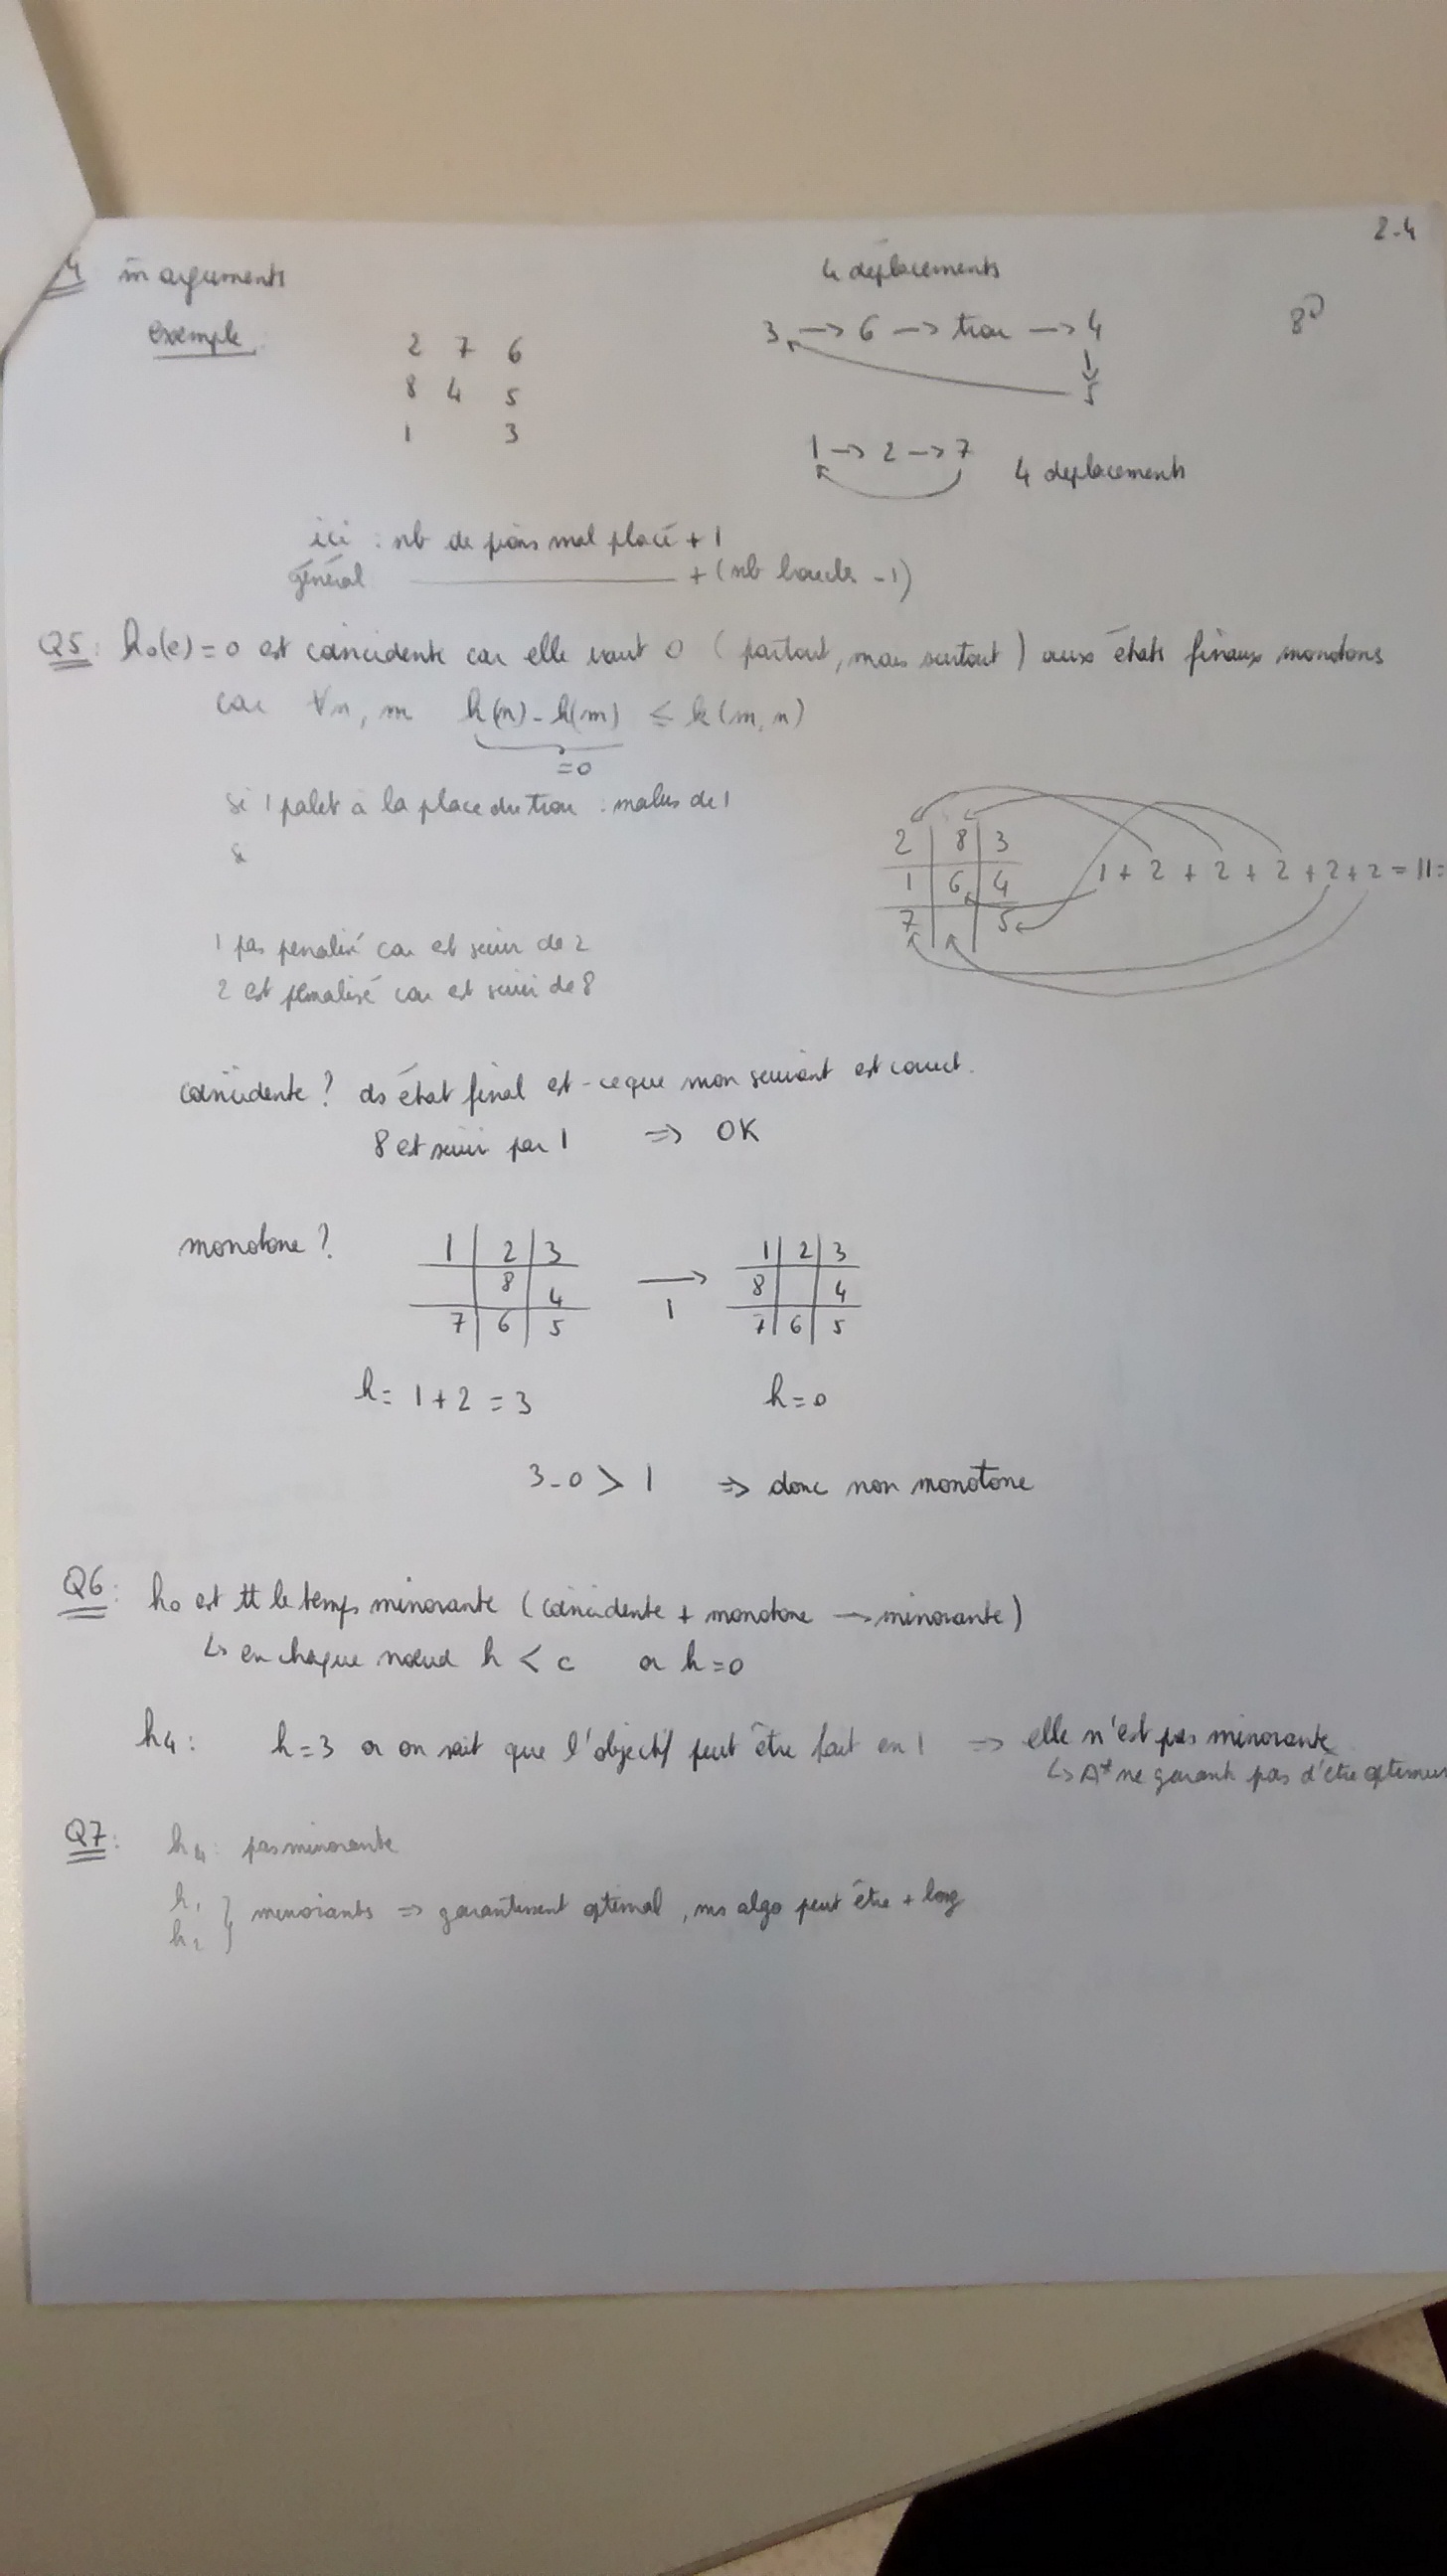 2.4
4 m̄ arguments
4 déplacements
exemple
2 7 6
8 4 5
1 3
3 -> 6 -> trou -> 4
5
8
1 -> 2 -> 7
4 déplacements
ici : nb de pions mal placé + 1
général + (nb boucles - 1)
Q5 : h₀(e) = 0 est coïncidente car elle vaut 0 (partout, mais surtout) aux états finaux monotone
car ∀n, m h(n) - h(m) ≤ k(m, n)
= 0
si 1 palet à la place du trou : malus de 1
&
2 8 3
1 6 4
7 5
1 + 2 + 2 + 2 + 2 + 2 = 11 =
1 pas penalisé car est suivi de 2
2 est penalisé car est suivi de 8
coïncidente ? ds état final est-ce que mon suivant est correct.
8 est suivi par 1 => OK
monotone ?
1 2 3
8 4
7 6 5
1
1 2 3
8 4
7 6 5
h = 1 + 2 = 3
h = 0
3 - 0 > 1 => donc non monotone
Q6 : h₀ est tt le temps minorante (coïncidente + monotone -> minorante)
↳ en chaque nœud h < c or h = 0
h₄ : h = 3 or on sait que l'objectif peut être fait en 1 => elle n'est pas minorante
↳ A* ne garant pas d'être
Q7 : h₄ : pas minorante
h₁
h₂ } minorants => garantissent optimal, ms algo peut être + long